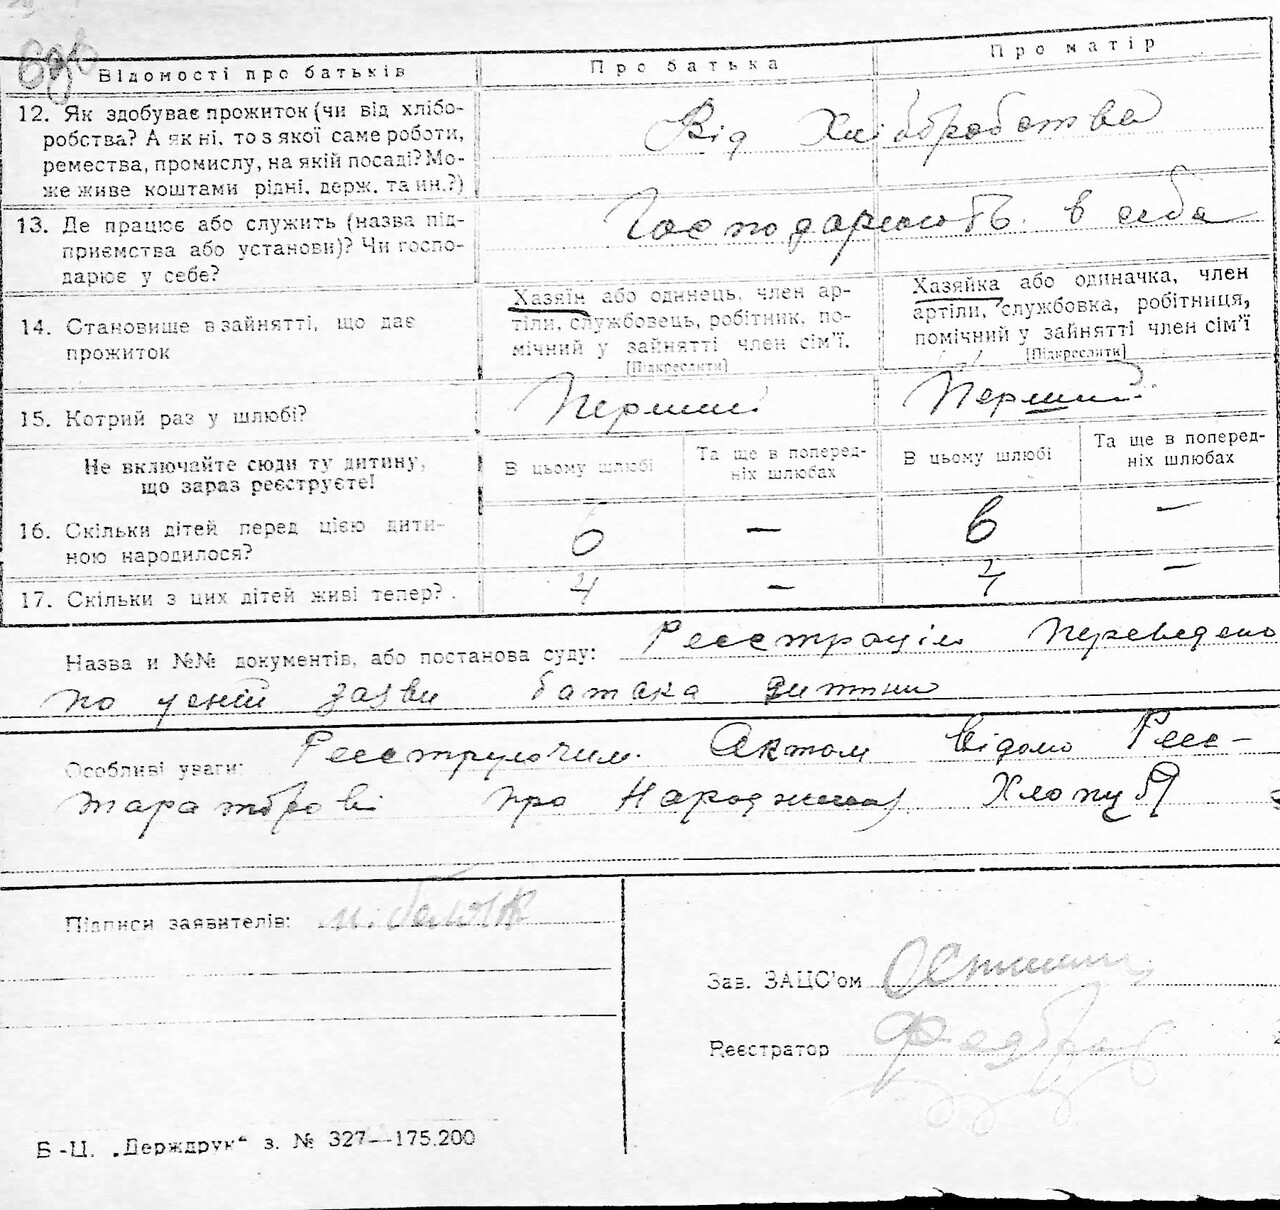 Відомості про батьків Про батька Про матір
12. Як здобуває прожиток (чи від хлібо-
робства? А як ні, то з якої саме роботи,
ремества, промислу, на якій посаді? Мо-
же живе коштами рідні, держ. та ин.?)
Від Хліборобства
13. Де працює або служить (назва під-
приємства або установи)? Чи госпо-
дарює у себе?
Господарюють в себе
14. Становище в зайнятті, що дає
прожиток
Хазяїн або одинець, член ар-
тіли, службовець, робітник, по-
мічний у зайнятті член сім'ї.
[Підкреслити]
Хазяйка або одиначка, член
артіли, службовка, робітниця,
помічний у зайнятті член сім'ї
[Підкреслити]
15. Котрий раз у шлюбі? Перший Перший
Не включайте сюди ту дитину,
що зараз реєструєте!
В цьому шлюбі
Та ще в поперед-
ніх шлюбах
В цьому шлюбі
Та ще в поперед-
ніх шлюбах
16. Скільки дітей перед цією дити-
ною народилося?
6 — 6 —
17. Скільки з цих дітей живі тепер? . 4 — 4 —
Назва и №№ документів, або постанова суду: Реєстрацію переведено
по усній заяві батька дитини
Особливі уваги: Реєструючим Актом відомо Реєс-
траторові про Народження Хлопця
Підписи заявителів:
Зав. ЗАЦС'ом
Реєстратор
Б-Ц. „Держдрук" з. № 327—175.200